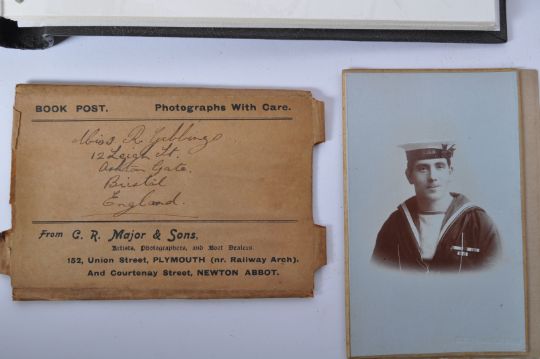 BOOK POST. Photographs With Care.
Miss R. Gibbings
12 Leigh St.
Ashton Gate.
Bristol
England.
From C. R. Major & Sons,
Artists, Photographers, and Boot Dealers
152, Union Street, PLYMOUTH (nr. Railway Arch).
And Courtenay Street, NEWTON ABBOT.